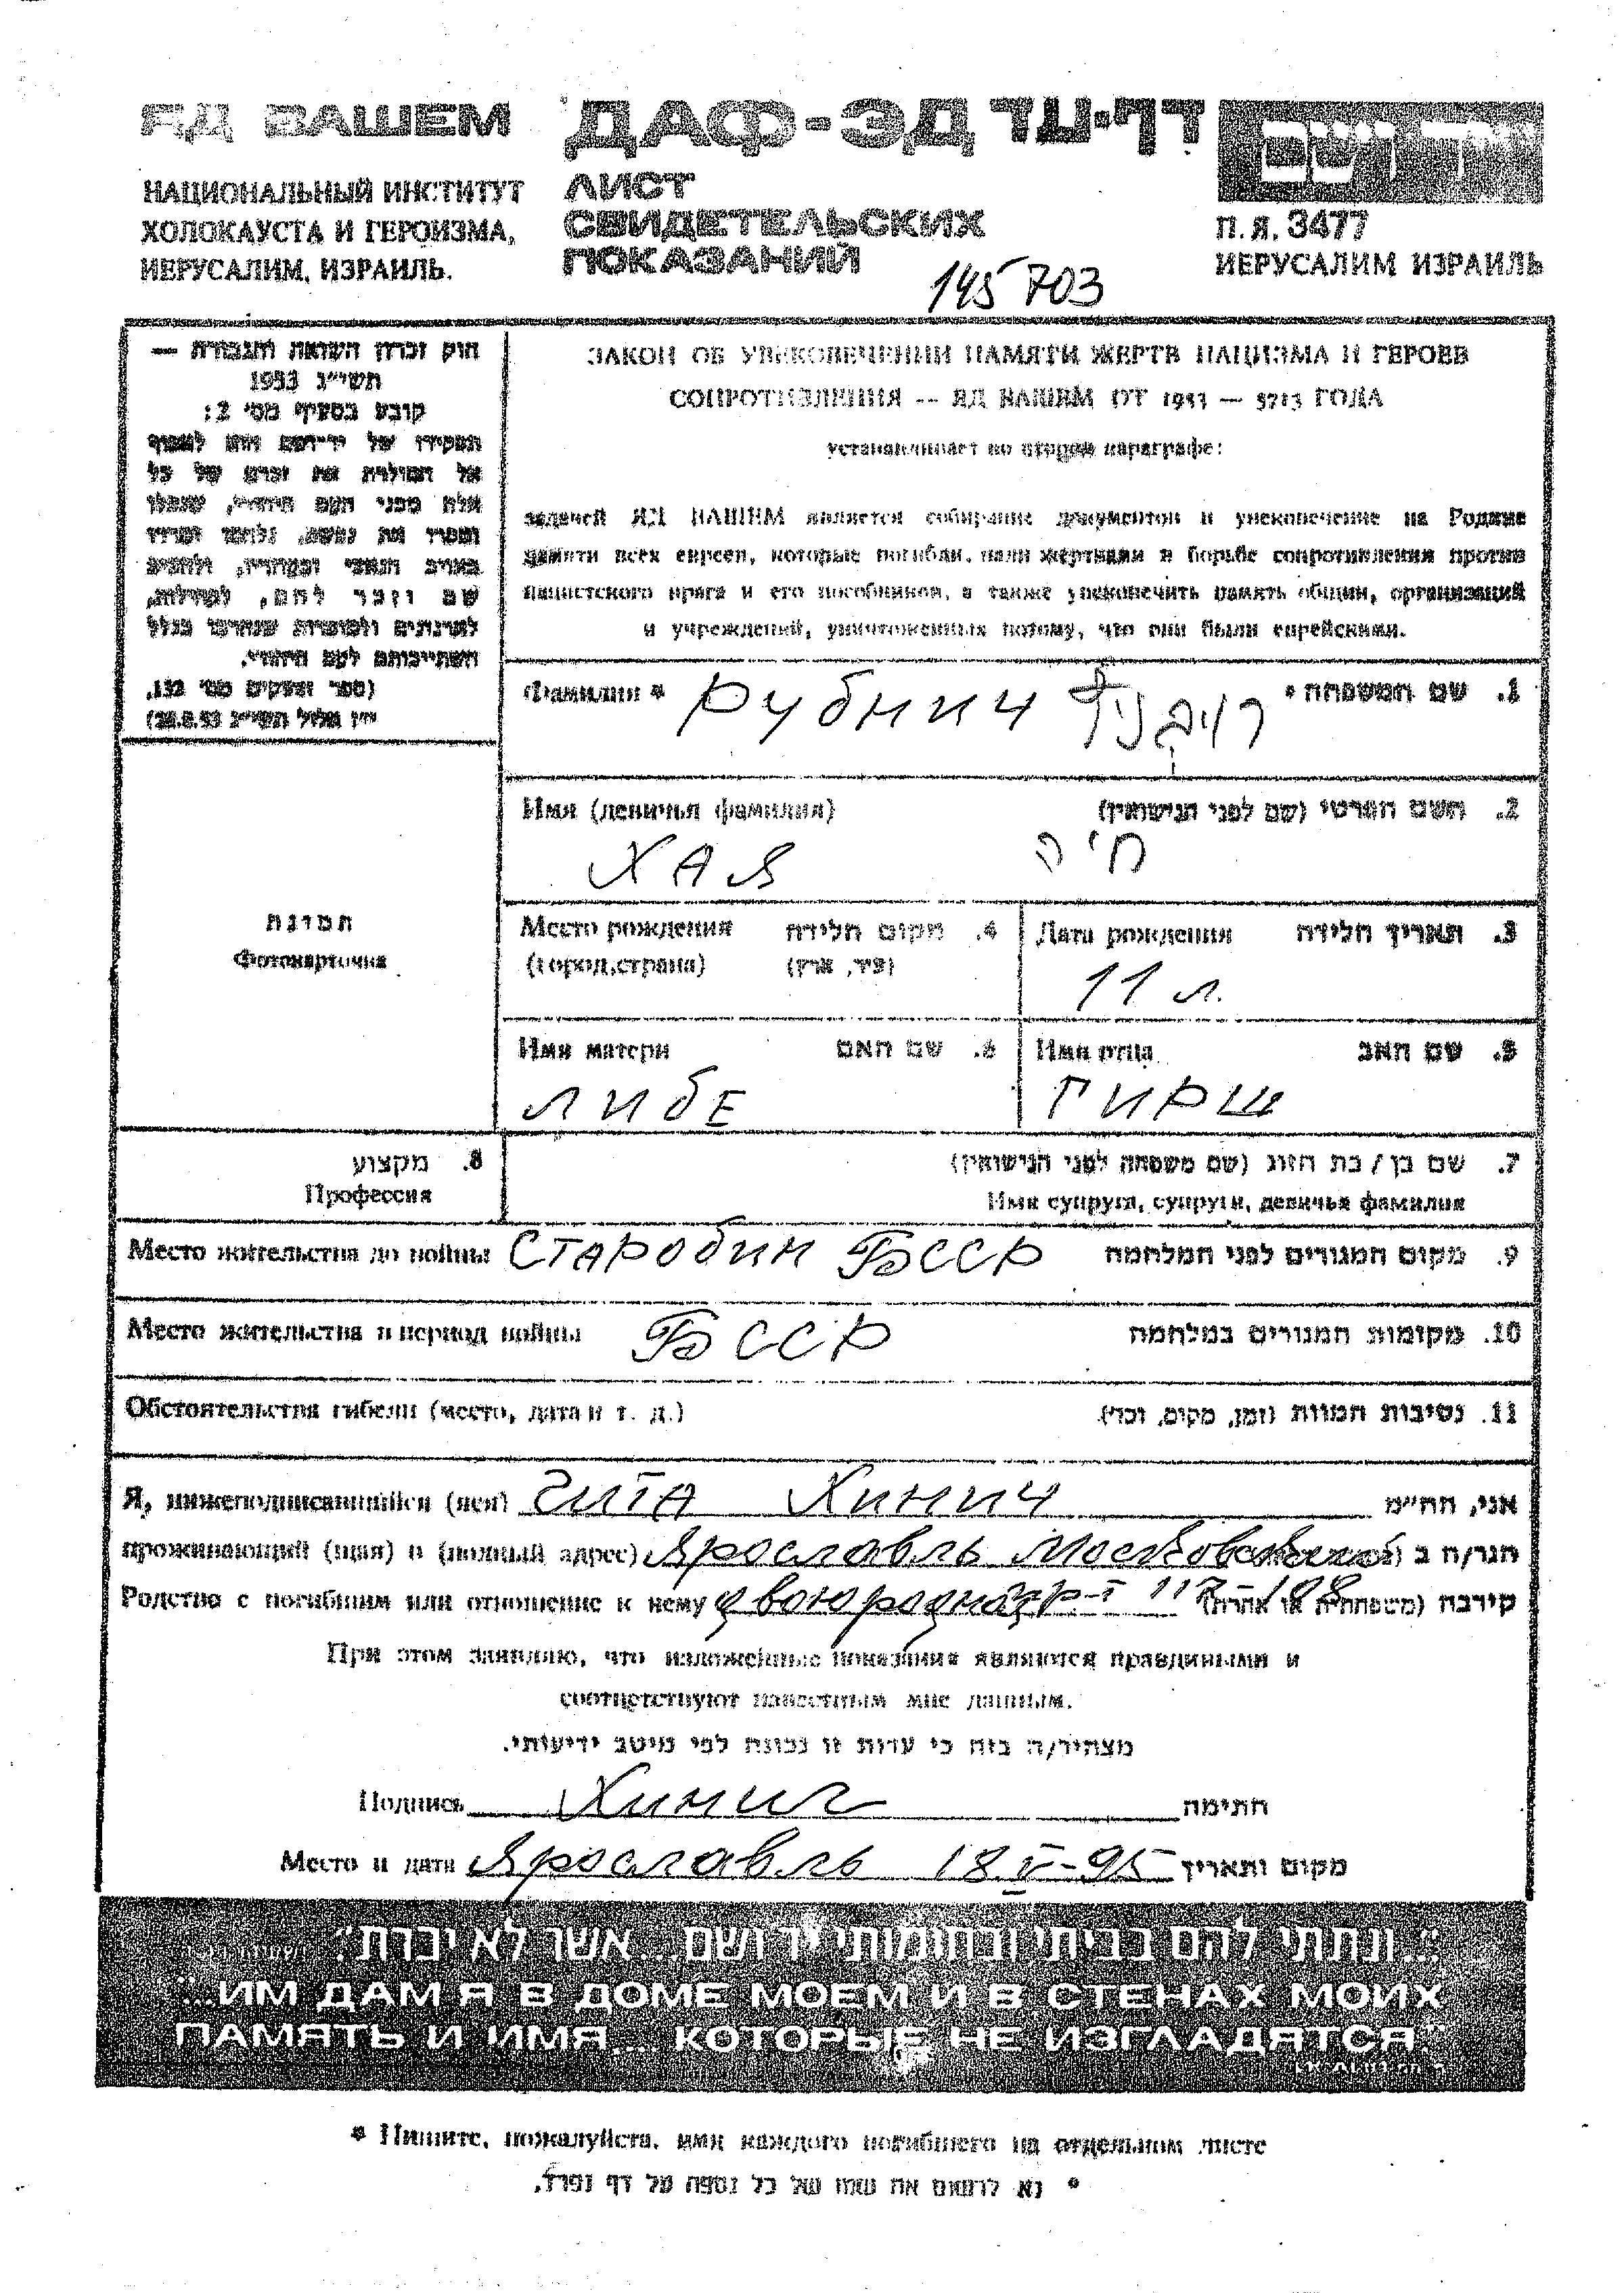 ЯД ВАШЕМ
НАЦИОНАЛЬНЫЙ ИНСТИТУТ
ХОЛОКАУСТА И ГЕРОИЗМА,
ИЕРУСАЛИМ, ИЗРАИЛЬ.
ДАФ-ЭД דף-עד
ЛИСТ
СВИДЕТЕЛЬСКИХ
ПОКАЗАНИЙ
145703
יד ושם
П.Я. 3477
ИЕРУСАЛИМ ИЗРАИЛЬ
חוק זכרון השואה והגבורה —
תשי״ג 1953
קובע בסעיף מס׳ 2:
תפקידו של יד־ושם הוא לאסוף
אל המולדת את זכרם של כל
אלה מבני העם היהודי, שנפלו
ומסרו את נפשם, נלחמו ומרדו
באויב הנאצי ובעוזריו, ולהציב
שם וזכר להם, לקהילות,
לארגונים ולמוסדות שנחרבו בגלל
השתייכותם לעם היהודי.
(ספר החוקים מס׳ 132,
י״ז אלול תשי״ג 28.8.53)
תמונה
Фотокарточка
ЗАКОН ОБ УВЕКОВЕЧЕНИИ ПАМЯТИ ЖЕРТВ НАЦИЗМА И ГЕРОЕВ
СОПРОТИВЛЕНИЯ -- ЯД ВАШЕМ ОТ 1953 — 5713 ГОДА
устанавливает во втором параграфе:
задачей ЯД ВАШЕМ является собирание документов и увековечение на Родине
памяти всех евреев, которые погибли, пали жертвами в борьбе сопротивления против
нацистского врага и его пособников, а также увековечить память общин, организаций
и учреждений, уничтоженных потому, что они были еврейскими.
Фамилия * Рубнич רובניץ 1. שם המשפחה *
Имя (девичья фамилия) 2. השם הפרטי (שם לפני הנישואין)
ХАЯ חיה
Место рождения 4. מקום הלידה
(город, страна) (עיר, ארץ)
Дата рождения 3. תאריך הלידה
11 л.
Имя матери 6. שם האם
ЛИБЕ
Имя отца 5. שם האב
ГИРШ
8. מקצוע
Профессия
7. שם בן / בת הזוג (שם משפחה לפני הנישואין)
Имя супруга, супруги, девичья фамилия
Место жительства до войны Старобин БССР 9. מקום המגורים לפני המלחמה
Место жительства в период войны БССР 10. מקומות המגורים במלחמה
Обстоятельства гибели (место, дата и т. д.) 11. נסיבות המוות (זמן, מקום, וכד׳).
Я, нижеподписавшийся (аяся) Гита Хинич אני, הח״מ
проживающий (щая) в (полный адрес) Ярославль Московский הגר/ה ב
Родство с погибшим или отношение к нему двоюродная пр-т 117-198 קירבה (משפחתית או אחרת)
При этом заявляю, что изложенные показания являются правдивыми и
соответствуют известным мне данным.
מצהיר/ה בזה כי עדות זו נכונה לפי מיטב ידיעותי.
Подпись Хинич חתימה
Место и дата Ярославль 18 V-95 מקום ותאריך
״...ונתתי להם בביתי ובחומותי יד ושם... אשר לא יכרת״
"...ИМ ДАМ Я В ДОМЕ МОЕМ И В СТЕНАХ МОИХ
ПАМЯТЬ И ИМЯ... КОТОРЫЕ НЕ ИЗГЛАДЯТСЯ."
* Пишите, пожалуйста, имя каждого погибшего на отдельном листе
* נא לרשום את שמו של כל נספה על דף נפרד.